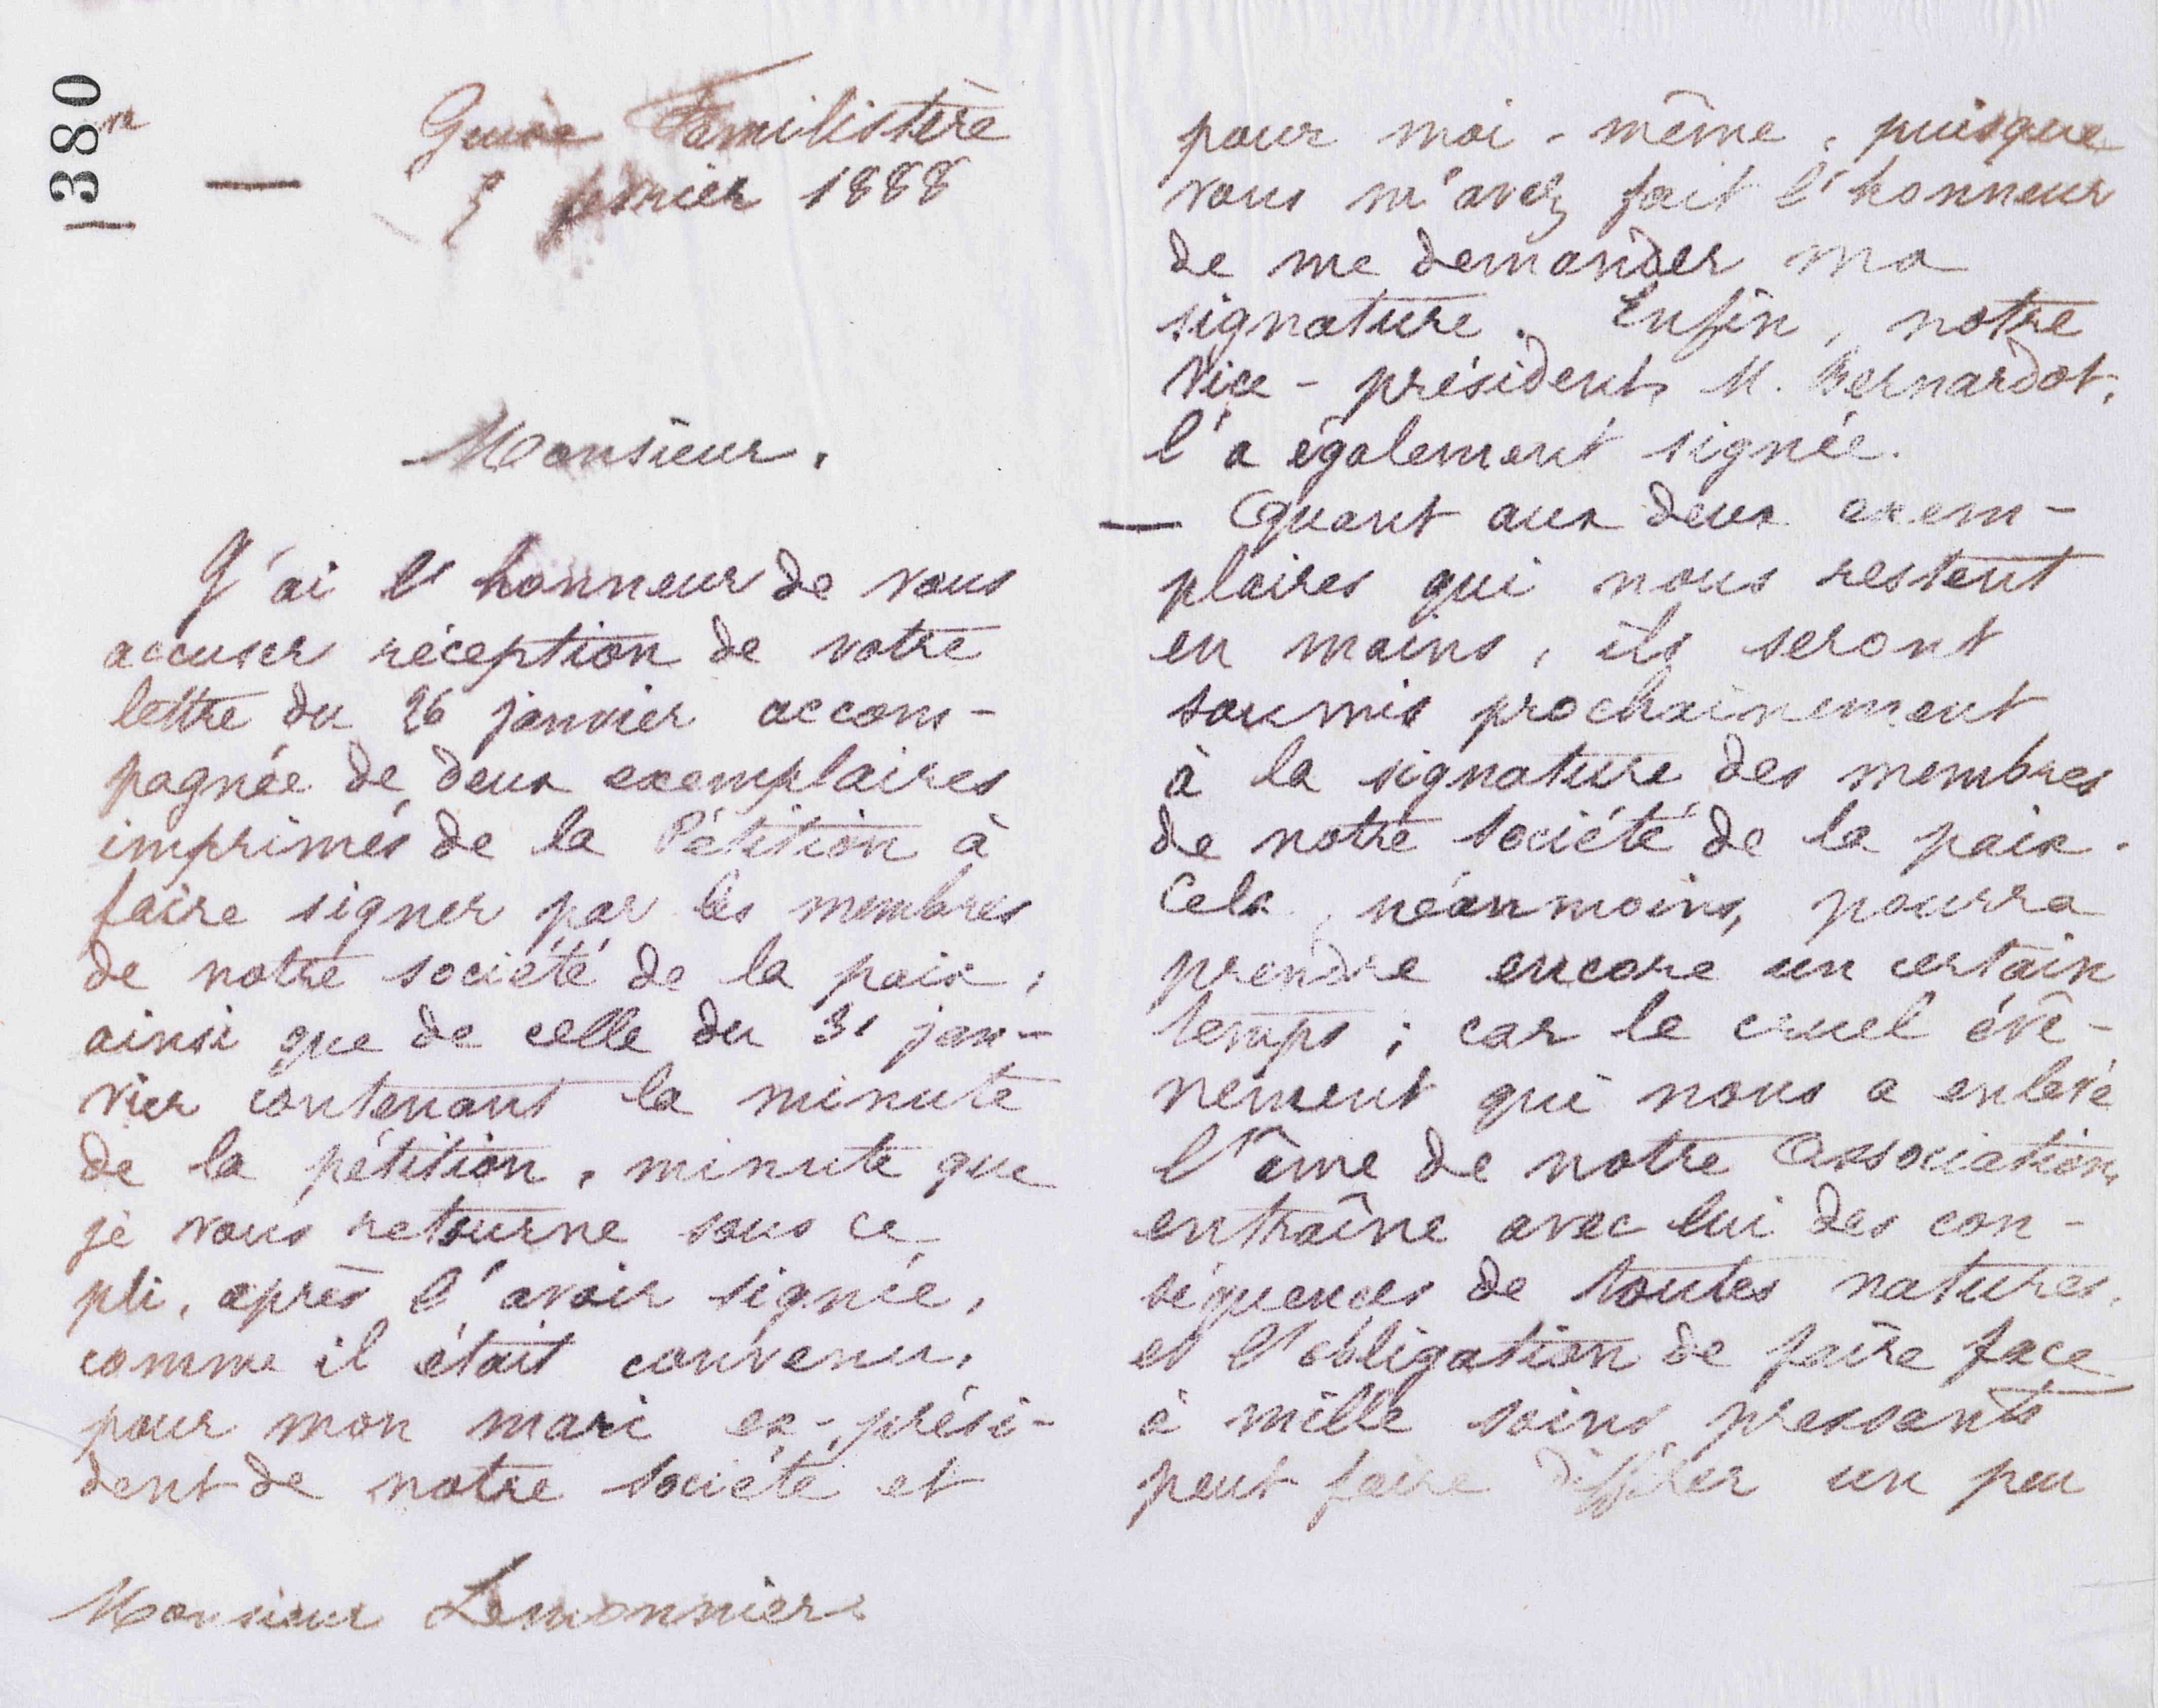 380
Guise Familistère
février 1888
Monsieur,
J'ai l'honneur de vous
accuser réception de votre
lettre du 26 janvier accom-
pagnée de deux exemplaires
imprimés de la Pétition à
faire signer par les membres
de notre société de la paix,
ainsi que de celle du 31 jan-
vier contenant la minute
de la pétition, minute que
je vous retourne sous ce
pli, après l'avoir signée,
comme il était convenu,
pour mon mari ex-prési-
dent de notre société et
Monsieur Lemonnier.
pour moi-même, puisque
vous m'avez fait l'honneur
de me demander ma
signature. Enfin, notre
Vice-président, M. Bernardot,
l'a également signée.
— Quant aux deux exem-
plaires qui nous restent
en mains, ils seront
soumis prochainement
à la signature des membres
de notre Société de la paix.
Cela, néanmoins, pourra
prendre encore un certain
temps ; car le cruel évè-
nement qui nous a enlevé
l'âme de notre Association,
entraîne avec lui des con-
séquences de toutes natures,
et l'obligation de faire face
à mille soins pressants
peut faire différer un peu